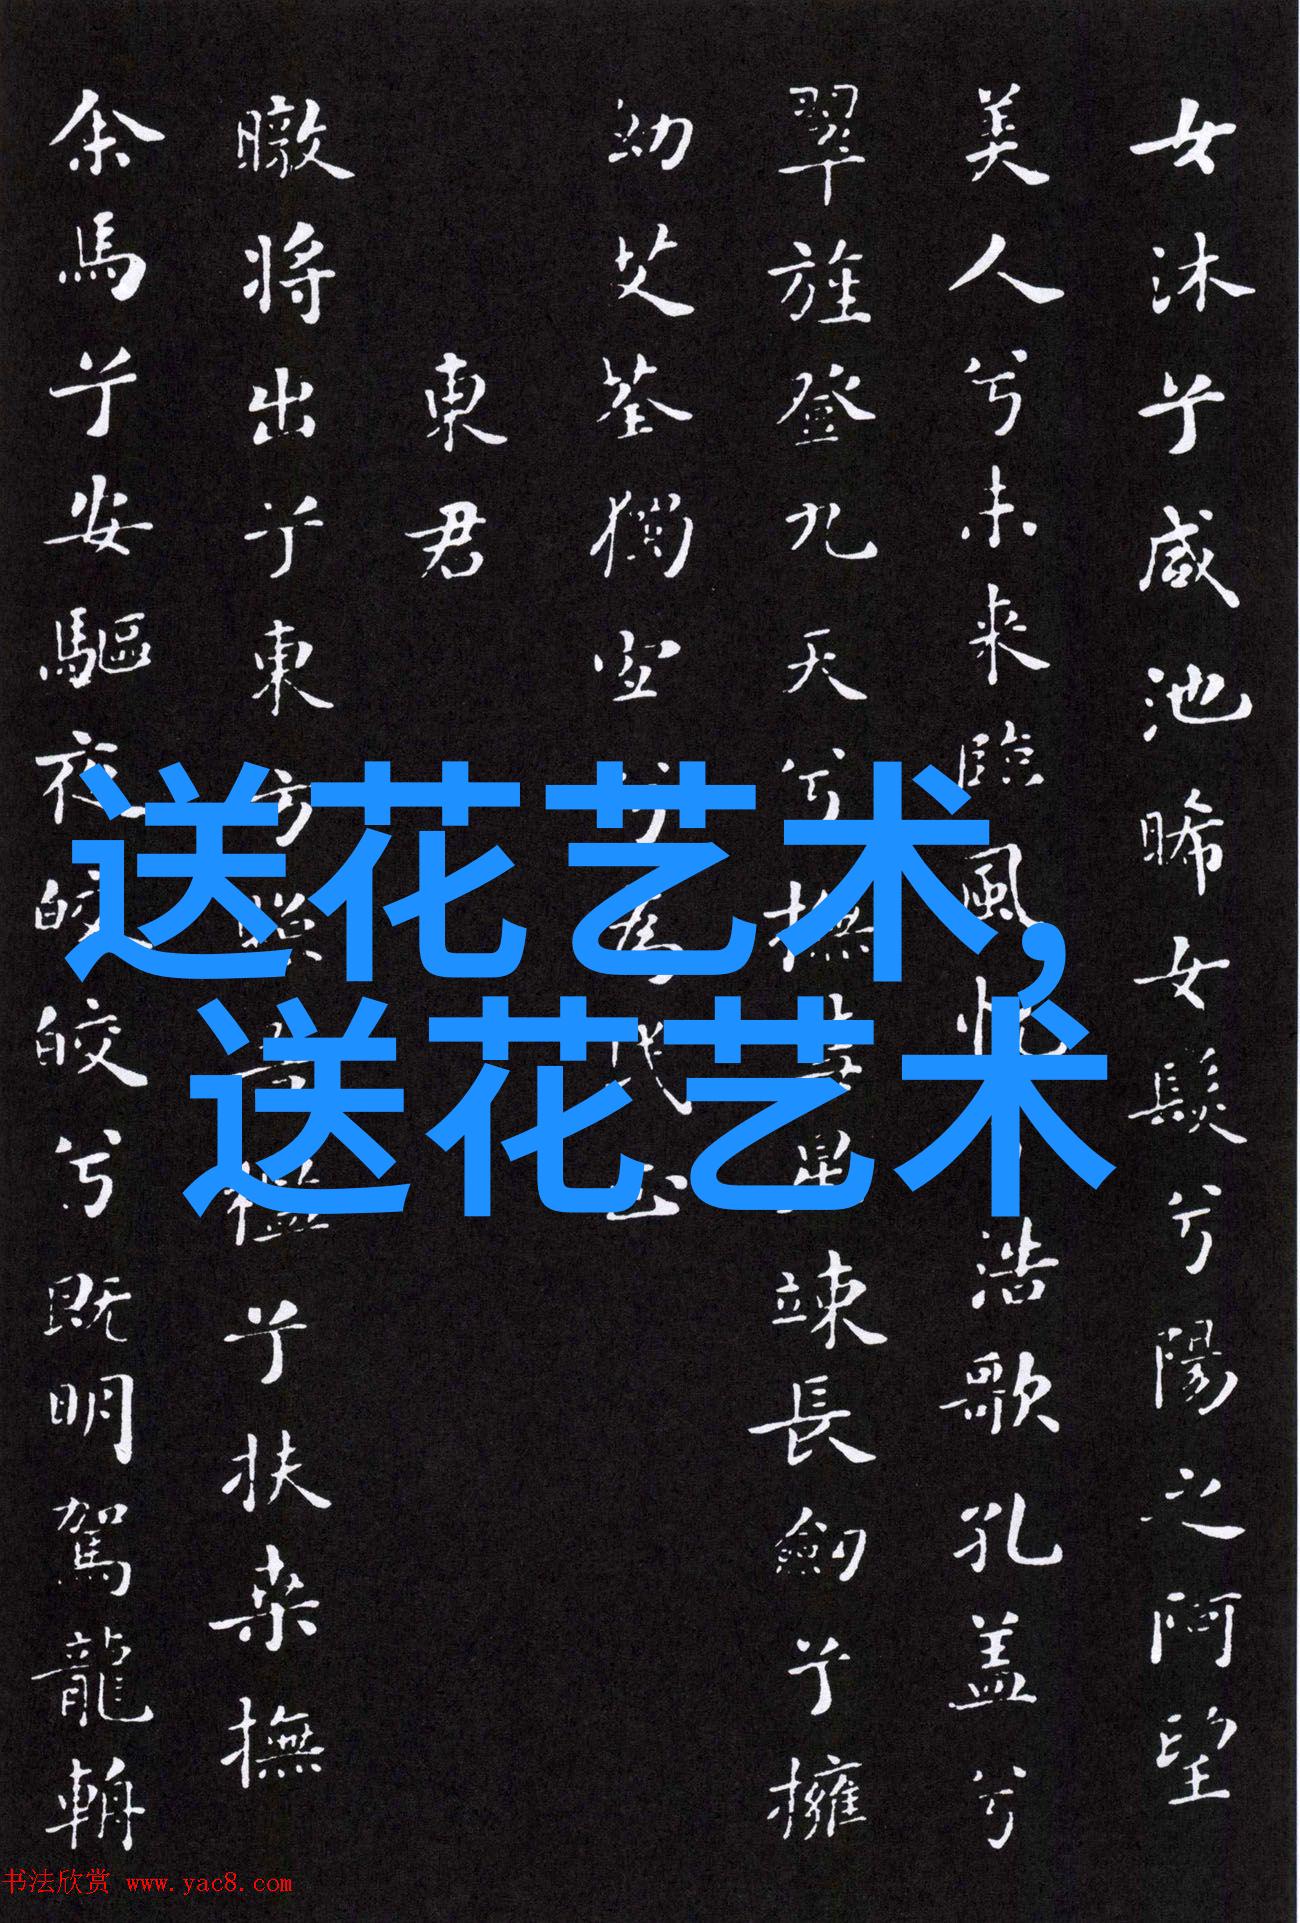 女沐兮咸池晞女髮兮陽之阿望
美人兮未来臨風怳兮浩歌孔盖兮
翠旌登九天兮撫彗星竦長劍兮擁
幼艾荃獨宜兮為民正
東君
暾将出兮東方照吾檻兮扶桑撫
余馬兮安驅夜皎皎兮既明駕龍輈
送花艺术,
送花艺术
书法欣赏 www.yac8.com